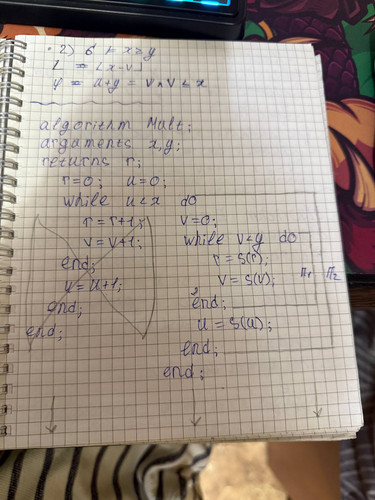 2) б ⊢ x ≥ y
l = [x-v]
φ = u+y = v ∧ v ≤ x
algorithm Mult;
arguments x,y;
returns r;
r=0; u=0;
while u<x do
r=r+1; v=0;
v=v+1; while v<y do
r=S(r);
end; v=S(v); π₁ π₂
u=u+1; end;
end; u=S(u);
end; end;
end;